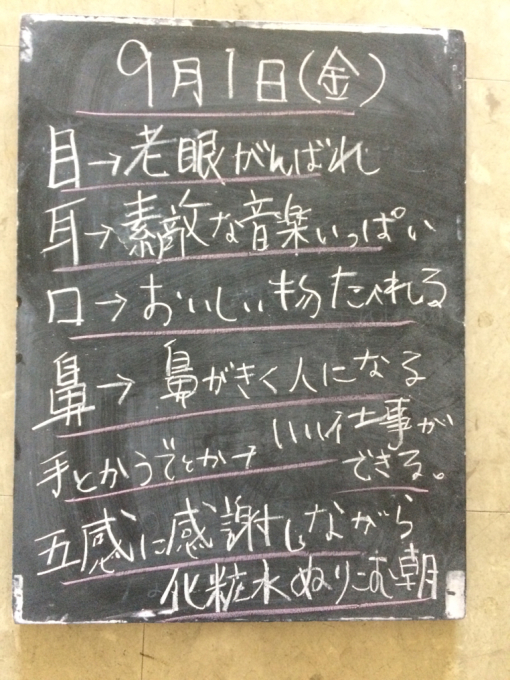 9月1日(金)
目→老眼がんばれ
耳→素敵な音楽いっぱい
口→おいしい物たべれる
鼻→鼻がきく人になる
手とかうでとか→いい仕事が
できる。
五感に感謝しながら
化粧水ぬりこむ朝